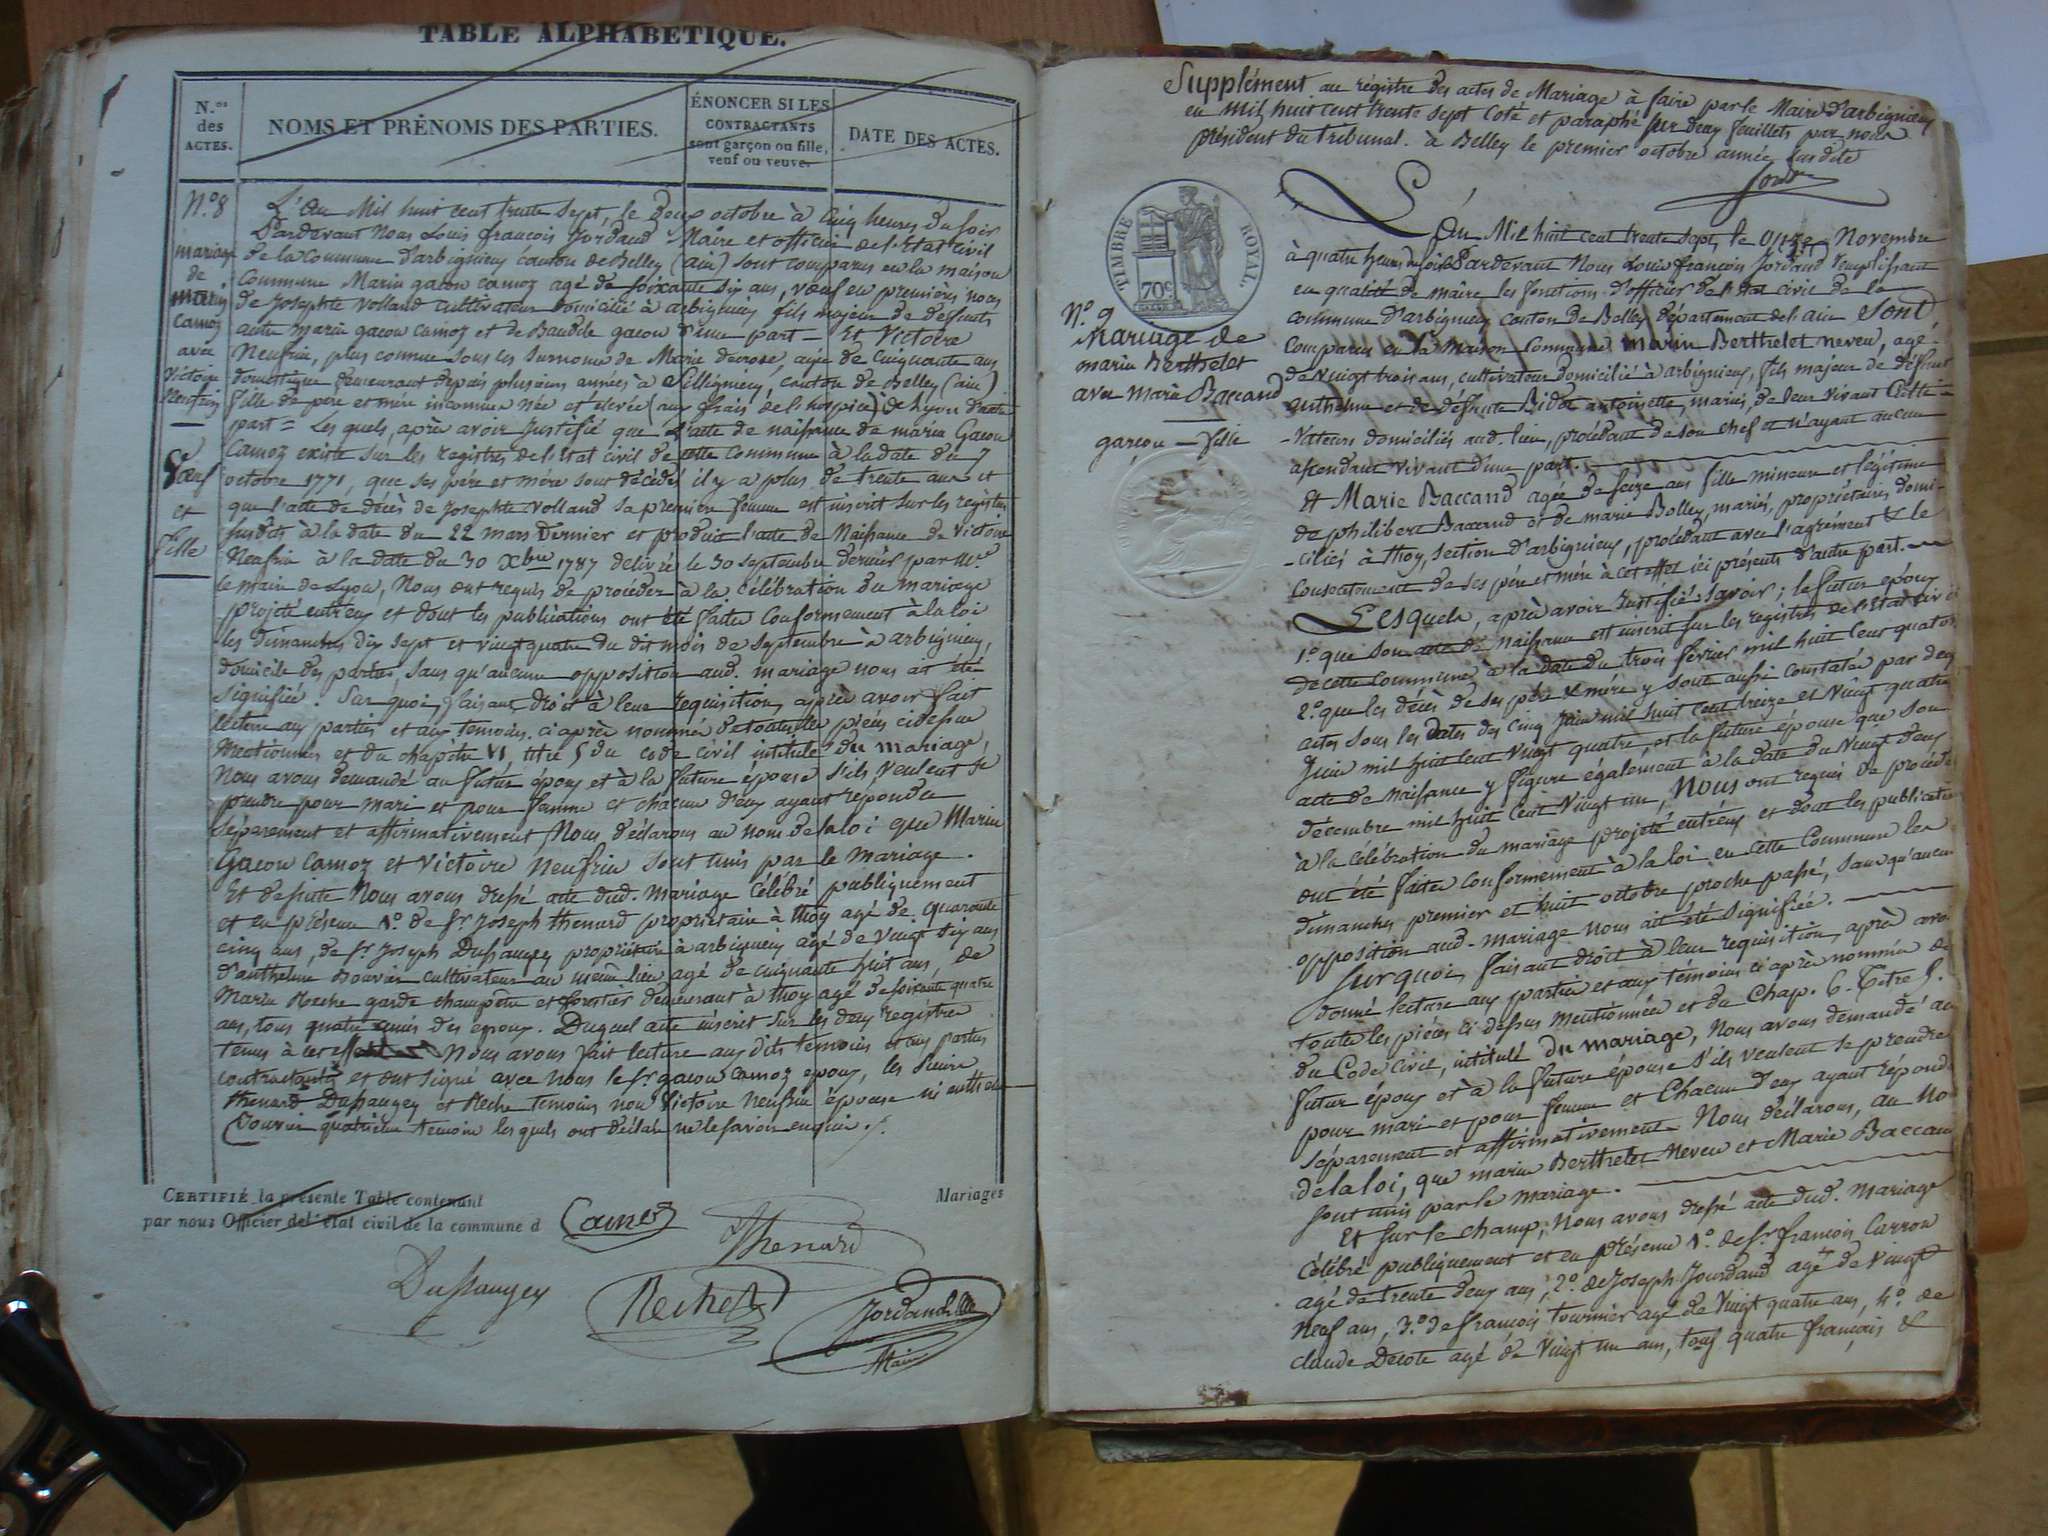 TABLE ALPHABÉTIQUE.
N.os des ACTES.
NOMS ET PRÉNOMS DES PARTIES.
ÉNONCER SI LES CONTRACTANTS sont garçon ou fille, veuf ou veuve.
DATE DES ACTES.
N.º 8
mariage
de
marin
camoz
avec
victoire
Neufrin
Vœuf
et
fille
L'an Mil huit cent trente sept, le deux octobre à cinq heures du soir
Pardevant Nous Louis françois Jordand Maire et officier de l'Etat civil
de la Commune d'arbignieu canton de Belley (ain) sont comparus en la maison
Commune Marin gacon camoz agé de soixante six ans, vœuf en premières noces
de Josephte Volland cultivateur domicilié à arbignieu fils majeur de defunts
autre Marin gacon camoz et de Baudile gacon d'une part — Et Victoire
Neufrin, plus connue sous les surnoms de Marie decrose, agée de Cinquante ans
domestique demeurant depuis plusieurs années à Peizieu, canton de Belley (ain)
fille de père et mère inconnus née et elevée (aux frais de l'hospice) de Lyon d'autre
part = Les quels, après avoir Justifié que l'acte de naissance de marin Gacon
Camoz existe sur les registres de l'Etat civil de cette commune à la date du 7
octobre 1771, que ses père et mère sont décédés il y a plus de trente ans et
que l'acte de décès de Josephte Volland sa première femme est inscrit sur les registres
susdits à la date du 22 mars Dernier et produit l'acte de Naissance de victoire
Neufrin à la date du 30 Xbre 1787 delivré le 30 septembre dernier par Mr.
le maire de Lyon, Nous ont requis de procéder à la célébration du mariage
projeté entr'eux et dont les publications ont été faites Conformement à la loi
les dimanches dix sept et vingt quatre du dit mois de septembre à arbignieu,
domicile des parties, sans qu'aucune opposition aud. mariage nous ait été
signifiée. Sur quoi, faisant droit à leur requisition, après avoir fait
lecture aux parties et aux temoins ci après nommés de toutes les pièces ci dessus
mentionnées et du chapitre VI titre 5 du code civil intitulé du mariage,
Nous avons demandé au futur époux et à la future épouse s'ils veulent se
prendre pour mari et pour femme et chacun d'eux ayant répondu
séparement et affirmativement Nous déclarons au nom de la loi que Marin
Gacon camoz et victoire Neufrin sont unis par le mariage.
Et de suite Nous avons dressé acte dud. mariage célébré publiquement
et en présence 1.º de Sr. Joseph thenard propriétaire à thoy agé de quarante
cinq ans, de Sr. Joseph Dussaugey propriétaire à arbignieu agé de vingt six ans
d'anthelme Bouvier cultivateur au même lieu agé de cinquante huit ans, de
Marin Reche garde champêtre et forestier demeurant à thoy agé de soixante quatre
ans, tous quatre amis des epoux. Duquel acte inscrit sur les deux registres
tenus à cet effet Nous avons fait lecture aux dits temoins et aux parties
contractantes et ont signé avec nous le Sr. gacon camoz epoux, les sieurs
thenard Dussaugey et Reche temoins non Victoire Neufrin épouse ni anthelme
Bouvier quatrieme temoin les quels ont déclaré ne le savoir enquis.
CERTIFIÉ la présente Table contenant Mariages
par nous Officier de l'état civil de la commune d
Camoz
Thenard
Dussaugey
Reche
Jordand
Maire
Supplément au régistre des actes de Mariage à faire par le Maire d'arbignieu
en Mil huit cent trente sept Coté et paraphé sur deux feuillets par nous
président du tribunal. à Belley le premier octobre année susdite
TIMBRE ROYAL.
70c
N.º 9
Mariage de
marin Berthelet
avec Marie Baccand
garçon — fille
L'an Mil huit cent trente sept, le onze Novembre
à quatre heures du soir Pardevant Nous Louis françois Jordand remplissant
en qualité de maire les fonctions d'officier de l'Etat civil de la
commune d'arbignieu canton de Belley département de l'ain Sont
comparus en la Maison Commune Marin Berthelet neveu, agé
de vingt trois ans, cultivateur domicilié à arbignieu, fils majeur de défunt
anthelme et de défunte Bidot antoinette, mariés, de leur vivant Culti-
-vateurs domiciliés aud. lieu, procédant de son chef et n'ayant aucun
ascendant vivant d'une part.
Et Marie Baccand agée de seize ans fille mineure et légitime
de philibert Baccand et de marie Bolley, mariés, propriétaires domi-
-ciliés à thoy, section d'arbignieu, procédant avec l'agrément & le
consentement de ses père et mère à cet effet ici présents d'autre part.
Lesquels, après avoir Justifié, savoir; le futur époux
1.º que son acte de naissance est inscrit sur les registres de l'état civil
de cette commune à la date du trois février mil huit cent quatorze
2.º que les décès de ses père & mère y sont aussi constatés par deux
actes sous les dates des cinq juin mil huit cent treize et vingt quatre
Juin mil huit cent vingt quatre, et la future épouse que son
acte de naissance y figure également à la date du vingt deux
décembre mil huit cent vingt un, Nous ont requis de procéder
à la célébration du mariage projeté entr'eux et dont les publications
ont été faites conformement à la loi en cette Commune les
dimanches premier et huit octobre proche passé, sans qu'aucune
opposition aud. mariage nous ait été signifiée.
Sur quoi, faisant droit à leur requisition, après avoir
donné lecture aux parties et aux témoins ci après nommés de
toutes les pièces ci dessus mentionnées et du Chap. 6. Titre 5.
du Code Civil, intitulé du mariage, Nous avons demandé au
futur époux et à la future épouse s'ils veulent se prendre
pour mari et pour femme et chacun d'eux ayant répondu
séparement et affirmativement Nous déclarons, au No
de la loi, que marin Berthelet Neveu et Marie Baccand
sont unis par le mariage.
Et sur le champ, Nous avons dressé acte dud. mariage
célébré publiquement et en présence 1.º de Sr. françois Carron
agé de trente deux ans, 2.º de Joseph Jourdand agé de vingt
neuf ans, 3.º de françois tournier agé de vingt quatre ans, 4.º de
claude Decote agé de vingt un ans, tous quatre français &